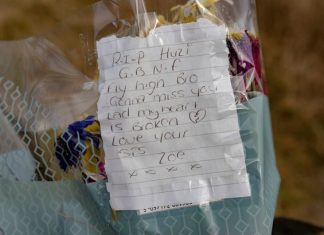 R.I.P Huzi
G.B.N.F
My nigh Bro
Gonna miss you
Lad my heart
is Broken
Love your
sis
Zoe
x x x x